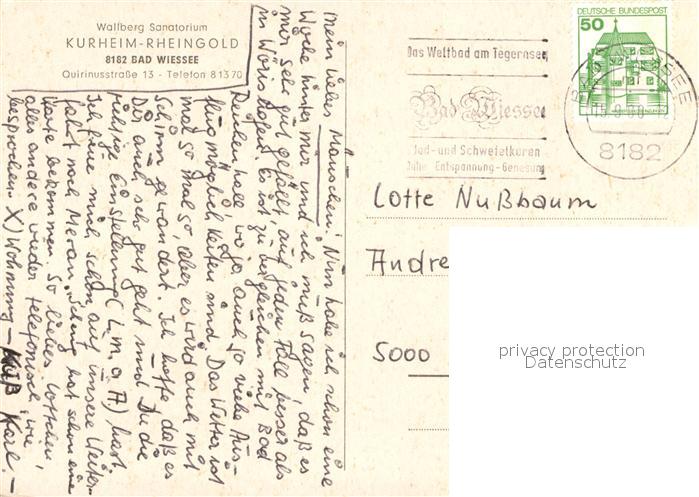 Wallberg Sanatorium
KURHEIM-RHEINGOLD
8182 BAD WIESSEE
Quirinusstraße 13 - Telefon 81370
Mein liebes Mäuschen! Nun habe ich schon eine
Woche hinter mir und ich muß sagen, daß es
mir sehr gut gefällt, auf jeden Fall besser als
in Wörishofen. Es ist zu vergleichen mit Bad
Reichenhall, wo ja auch so viele Aus-
flugmöglichkeiten sind. Das Wetter ist
mal so mal so, aber es wird auch mit
Schirm gewandert. Ich hoffe, daß es
Dir auch sehr gut geht und Du die
richtige Einstellung (L.m.a.A) hast.
Ich freue mich schon auf unsere Weiter-
fahrt nach Meran. hat schon eine
Karte bekommen. So liebes Lottchen,
alles andere wieder telefonisch, wie
besprochen. X) Wohnung – Kuß Karl. –
Das Weltbad am Tegernsee
Bad Wiessee
Jod- und Schwefelkuren
Ruhe - Entspannung - Genesung
DEUTSCHE BUNDESPOST
50
8182
Lotte Nußbaum
Andre
5000
privacy protection
Datenschutz